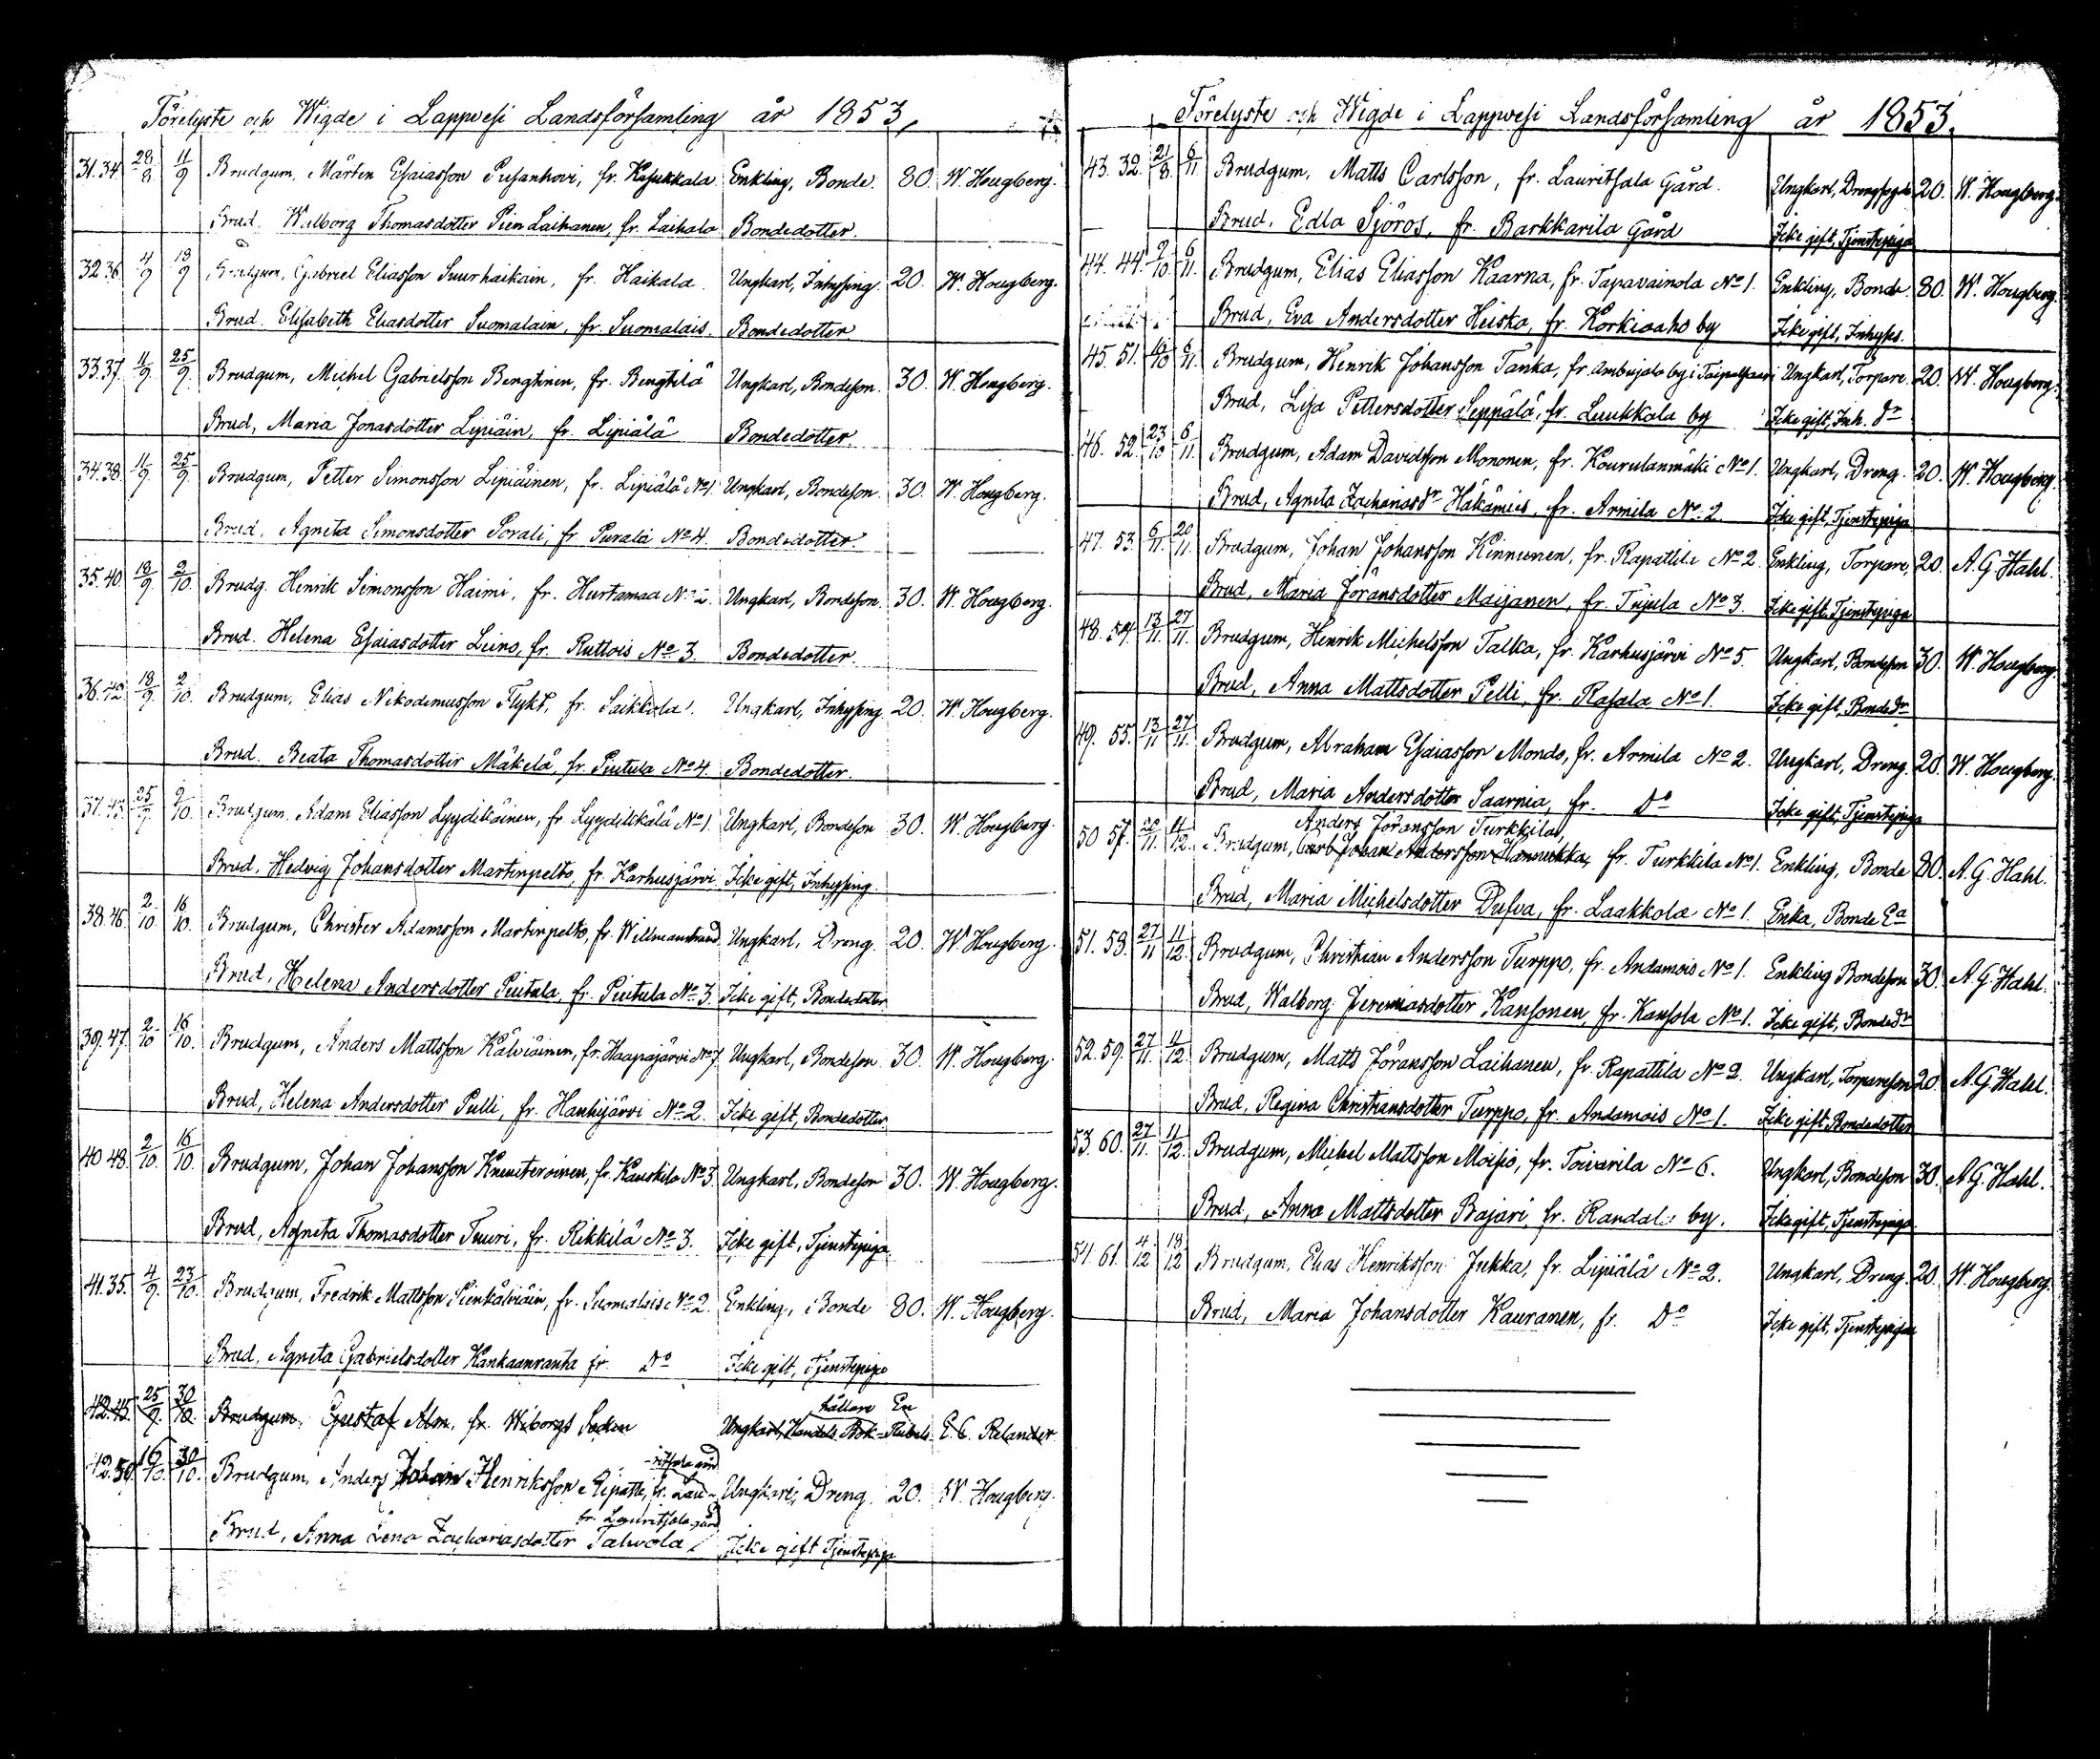 Förelyste och Wigde i Lappvesi Landsförsamling år 1853,
31. 34. 28/8 11/9 Brudgum, Mårten Esaiasson Pusanhovi, fr. Kasukkala Enkling, Bonde. 80. W. Hougberg.
Brud. Walborg Thomasdotter Pien Laihanen, fr. Laihala Bondedotter.
32. 36. 4/9 18/9 Brudgum, Gabriel Eliasson Suurhaikain, fr. Haikala. Ungkarl, Inhysing. 20. W. Hougberg.
Brud. Elisabeth Eliasdotter Suomalain, fr. Suomalais. Bondedotter
33. 37. 11/9 25/9 Brudgum, Michel Gabrielsson Bengtinen, fr. Bengtilä Ungkarl, Bondeson. 30. W. Hougberg.
Brud, Maria Jonasdotter Lipiäin, fr. Lipiälä Bondedotter.
34. 38. 11/9 25/9 Brudgum, Petter Simonsson Lipiäinen, fr. Lipiälä No 1. Ungkarl, Bondeson. 30. W. Hougberg.
Brud. Agneta Simonsdotter Porali, fr. Purala No 4. Bondedotter.
35. 40. 18/9 2/10. Brudg. Henrik Simonsson Haimi, fr. Hurtamaa No 2. Ungkarl, Bondeson. 30. W. Hougberg.
Brud. Helena Esaiasdotter Leino, fr. Ruttois No 3. Bondedotter.
36. 42. 18/9. 2/10. Brudgum, Elias Nikodemusson Flykt, fr. Saikkola. Ungkarl, Inhysing 20. W. Hougberg.
Brud. Beata Thomasdotter Mäkelä, fr. Piutula No 4. Bondedotter.
37. 43. 25/9. 9/10. Brudgum. Adam Eliasson Lyydikäinen, fr. Lyydikkälä No 1. Ungkarl, Bondeson 30. W. Hougberg.
Brud, Hedvig Johansdotter Martinpelto, fr. Karhusjärvi. Icke gift, Inhysing.
38. 46. 2/10. 16/10. Brudgum, Christer Adamsson Martinpelto, fr. Willmanstrand Ungkarl, Dreng. 20. W Hougberg.
Brud, Helena Andersdotter Piutula, fr. Piutula No 3. Icke gift, Bondedotter
39. 47. 2/10 16/10. Brudgum, Anders Mattsson Kälviäinen, fr. Haapajärvi No 7. Ungkarl, Bondeson. 30. W. Hougberg.
Brud, Helena Andersdotter Pulli, fr. Hanhijärvi No 2. Icke gift, Bondedotter
40. 48. 2/10. 16/10. Brudgum, Johan Johansson fr. Kauskila No 3. Ungkarl, Bondeson 30. W. Hougberg.
Brud, Agneta Thomasdotter Tuuri, fr. Rikkilä No 3. Icke gift, Tjenstepiga
41. 35. 4/9. 23/10. Brudgum, Fredrik Mattsson Pienkälviäin, fr. Suomalais No 2. Enkling, Bonde 80. W. Hougberg.
Brud, Agneta Gabrielsdotter Kankaanranta fr. Do Icke gift, Tjenstepiga
hållare En
42. 45. 25/9. 30/10. Brudgum. Gustaf Alm, fr. Wiborgs Socken Ungkarl, Handels Bok- Rubels E. C. Relander
ritsala gård
42. 50. 16/10. 30/10. Brudgum, Anders Johan Henriksson Ripatti, fr. Lau- Ungkarl, Dreng. 20. W. Hougberg.
fr. Lauritsala gård
Brud, Anna Lena Zachariasdotter Talwola, Icke gift Tjenstepiga
Förelyste och Wigde i Lappvesi Landsförsamling år 1853.
43. 32. 21/8. 6/11 Brudgum, Matts Carlsson, fr. Lauritsala Gård. Ungkarl, Drengfogde 20. W. Hougberg.
Brud. Edla Sjöros, fr. Barkkarila Gård Icke gift, Tjenstepiga
44. 44. 9/10 6/11. Brudgum, Elias Eliasson Kaarna, fr. Tapavainola No 1. Enkling, Bonde 80. W. Hougberg.
Brud, Eva Andersdotter Heiska, fr. Korkiaaho by Icke gift, Inhyses.
45. 51. 16/10 6/11. Brudgum, Henrik Johansson Tanka, fr. Ambujala by i Taipalsaari Ungkarl, Torpare. 20. W. Hougberg.
Brud, Lisa Pettersdotter Seppälä, fr. Luukkala by Icke gift, Inh. dr
46. 52. 23/10 6/11. Brudgum, Adam Davidsson Mononen, fr. Kourulanmäki No 1. Ungkarl, Dreng. 20. W. Hougberg.
Brud, Agneta Zachariasdr Häkämies, fr. Armila No 2. Icke gift, Tjenstepiga
47. 53. 6/11. 20/11. Brudgum, Johan Johansson Kinnunen, fr. Rapattila No 2. Enkling, Torpare, 20. A. G. Hahl.
Brud, Maria Jöransdotter Maijanen, fr. Tujula No 3. Icke gift, Tjenstepiga
48. 54. 13/11. 27/11. Brudgum, Henrik Michelsson Talka, fr. Karhusjärvi No 5. Ungkarl, Bondeson 30. W. Hougberg.
Brud, Anna Mattsdotter Pelli, fr. Rasala No 1. Icke gift, Bondedr
49. 55. 13/11 27/11. Brudgum, Abraham Esaiasson Mondo, fr. Armila No 2. Ungkarl, Dreng. 20. W. Hougberg.
Brud, Maria Andersdotter Saarnia, fr. Do Icke gift, Tjenstepiga
Anders Jöransson Turkkila,
50 57. 20/11. 11/12. Brudgum, Johan Andersson Hannukka, fr. Turkkila No 1. Enkling, Bonde 80. A. G. Hahl.
Brud, Maria Michelsdotter Dufva, fr. Laakkola No 1. Enka, Bonde Ea
51. 58. 27/11 11/12. Brudgum, Christian Andersson Turppo, fr. Andamois No 1. Enkling Bondeson 30. A. G. Hahl.
Brud, Walborg Jeremiasdotter Kansonen, fr. Kansola No 1. Icke gift, Bondedr
52. 59. 27/11. 11/12. Brudgum, Matts Jöransson Laihanen, fr. Rapattila No 2. Ungkarl, Torpareson 20. A. G. Hahl.
Brud, Regina Christiansdotter Turppo, fr. Andamois No 1. Icke gift Bondedotter
53. 60. 27/11. 11/12. Brudgum, Michel Mattsson Moisio, fr. Toivarila No 6. Ungkarl, Bondeson 30. A. G. Hahl.
Brud, Anna Mattsdotter Bajari fr. Randala by. Icke gift, Tjenstepiga
54. 61. 4/12 18/12 Brudgum, Elias Henriksson Jukka, fr. Lipiälä No 2. Ungkarl, Dreng. 20. W. Hougberg.
Brud, Maria Johansdotter Kauranen, fr. Do Icke gift, Tjenstepiga